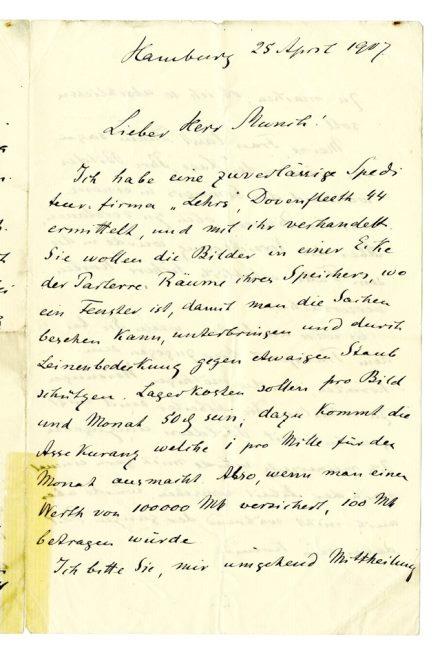 Hamburg 25 April 1907
Lieber Herr Munch!
Ich habe eine zuverlässige Spedi
teur-firma „Lehrs", Dovenfleeth 44
ermittelt, und mit ihr verhandelt.
Sie wollen die Bilder in einer Ecke
der Parterre-Räume ihres Speichers, wo
ein Fenster ist, damit man die Sachen
besehen kann, unterbringen und durch
Leinenbedeckung gegen etwaigen Staub
schützen. Lagerkosten sollen pro Bild
und Monat 50₰ sein; dazu kommt die
Assekuranz welche 1 pro Mille für den
Monat ausmacht Also, wenn man einen
Werth von 100000 Mk versichert, 100 Mk
betragen würde
Ich bitte Sie, mir umgehend Mittheilung